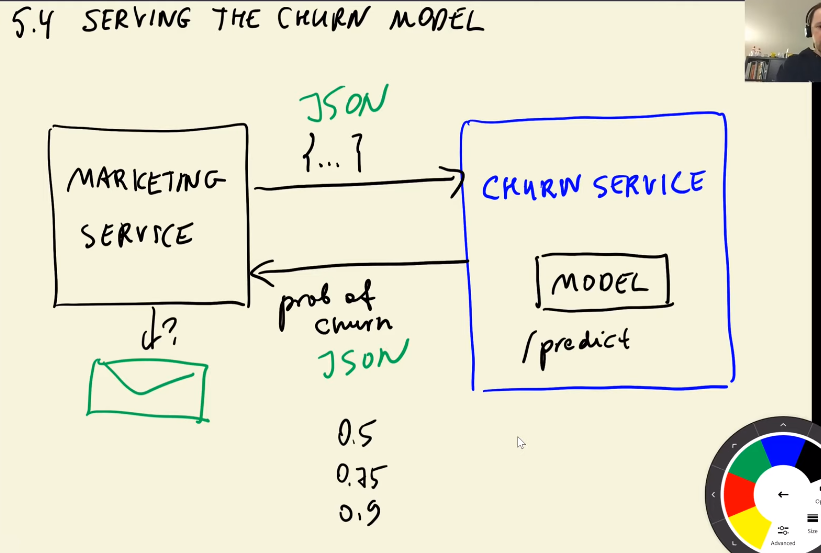 5.4 SERVING THE CHURN MODEL
JSON
{...}
MARKETING
SERVICE
CHURN SERVICE
MODEL
/predict
prob of
churn
JSON
?
0.5
0.75
0.9
Advanced
Size